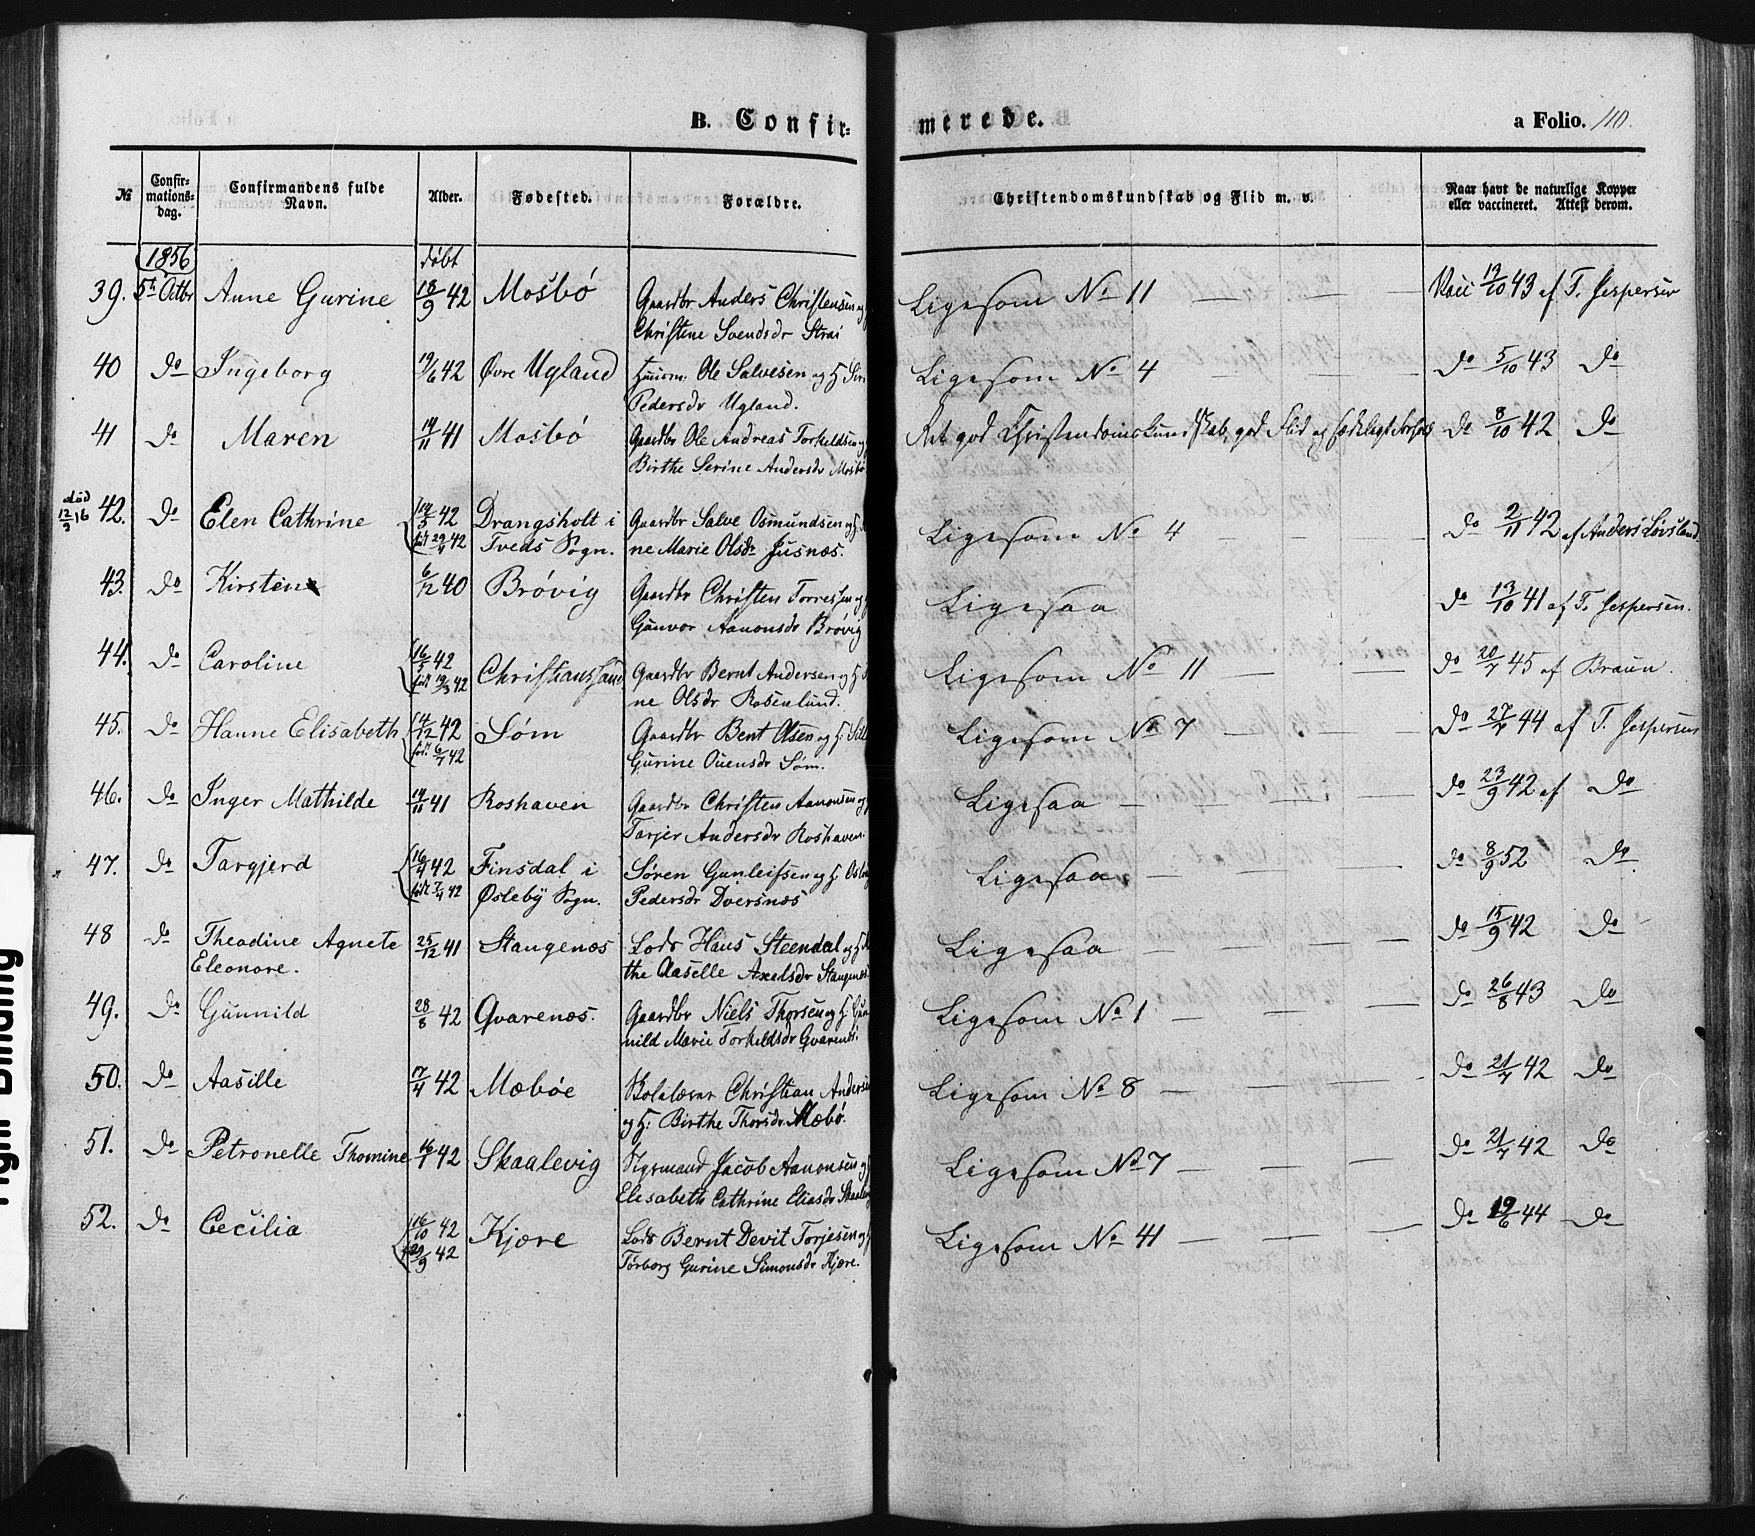 B. Confir-
merede.
a Folio. 110.
№
Confir-
mations-
dag.
Confirmandens fulde
Navn.
Alder.
Fødested.
Forældre.
Christendomskundskab og Flid m. v.
Naar havt de naturlige Kopper
eller vaccineret. Attest derom.
1856
døbt
39. 5t Octbr Anne Gurine 18/9 42 Mosbö Gaardbr Anders Christensen og
Christine Svendsdr Strai
Ligesom No 11 — — — Vacc 19/10 43 af T. Jespersen
40 Do Ingeborg 19/6 42 Øvre Ugland Huusm. Ole Salvesen og H. Siri
Pedersdr Ugland.
Ligesom No 4 — — — Do 5/10 43 Do
41 Do Maren 14/11 41 Mosbö Gaardbr Ole Andreas Torkeldsen og
Birthe Serine Andersdr Mosbö
Ret god Christendomskundskab, god Flid og sædeligt Forhold Do 8/10 42 Do
død
12/9 16
42. Do Elen Cathrine 14/5 42 Drangsholt i Gaardbr Salve Osmundsen og H.
født 29/4 42 Tveds Sogn. ne Marie Olsdr Jusnæs.
Ligesom No 4 — — — Do 2/11 42 af Anders Løvsland
43. Do Kirstene 6/12 40 Brövig Gaardbr Christen Torressen og
Gunvor Aanonsdr Brövig
Ligesaa Do 13/10 41 af T. Jespersen.
44. Do Caroline 16/5 42 Christianssand Gaardbr Bernt Andersen og H.
født 19/3 42 ne Olsdr Rosenlund.
Ligesom No 11 — — — Do 20/7 45 af Braun.
45. Do Hanne Elisabeth 4/12 42 Søm Gaardbr Bent Olsen og H. Sill
født 6/7 42 Gurine Ouensdr Søm.
Ligesom No 7 — — — Do 27/7 44 af T. Jespersen
46. Do Inger Mathilde 14/11 41 Roshaven Gaardbr Christen Aanonsen og
Tarjer Andersdr Roshaven.
Ligesaa — — — Do 23/9 42 af Do
47. Do Targjerd 16/4 42 Finsdal i Søren Gunleifsen og H.
født 7/4 42 Øsleby Sogn. Pedersdr Dversnæs
Ligesaa — — — Do 8/9 52 Do
48 Do Theodine Agnete 25/12 41 Stangenæs Lods Hans Steendal og H.
Eleonore. the Aaselle Axelsdr Stangenæs
Ligesaa — — — Do 15/9 42 Do
49. Do Gunnild 28/8 42 Qvarenæs. Gaardbr Niels Thorsen og H. Gun
nild Marie Torkeldsdr Qvarenæs.
Ligesom No 1 — — — Do 26/8 43 Do
50. Do Aasille 17/4 42 Mæböe Skolelærer Christian Andersen
og H. Birthe Thorsdr Mæbö.
Ligesom No 8 — — — Do 21/7 42 Do
51. Do Petronelle Thomine 16/1 42 Skaalevig Jacob Aanonsen og
Elesabeth Cathrine Eliasdr Skaalevig
Ligesom No 7 — — — Do 21/7 42 Do
52. Do Cecilia 16/10 42 Kjære Lods Bernt Devit Torjesen og H
20/9 42 Torborg Gurine Simonsdr Kjære.
Ligesom No 41 — — — Do 19/6 44 Do
Tight Binding